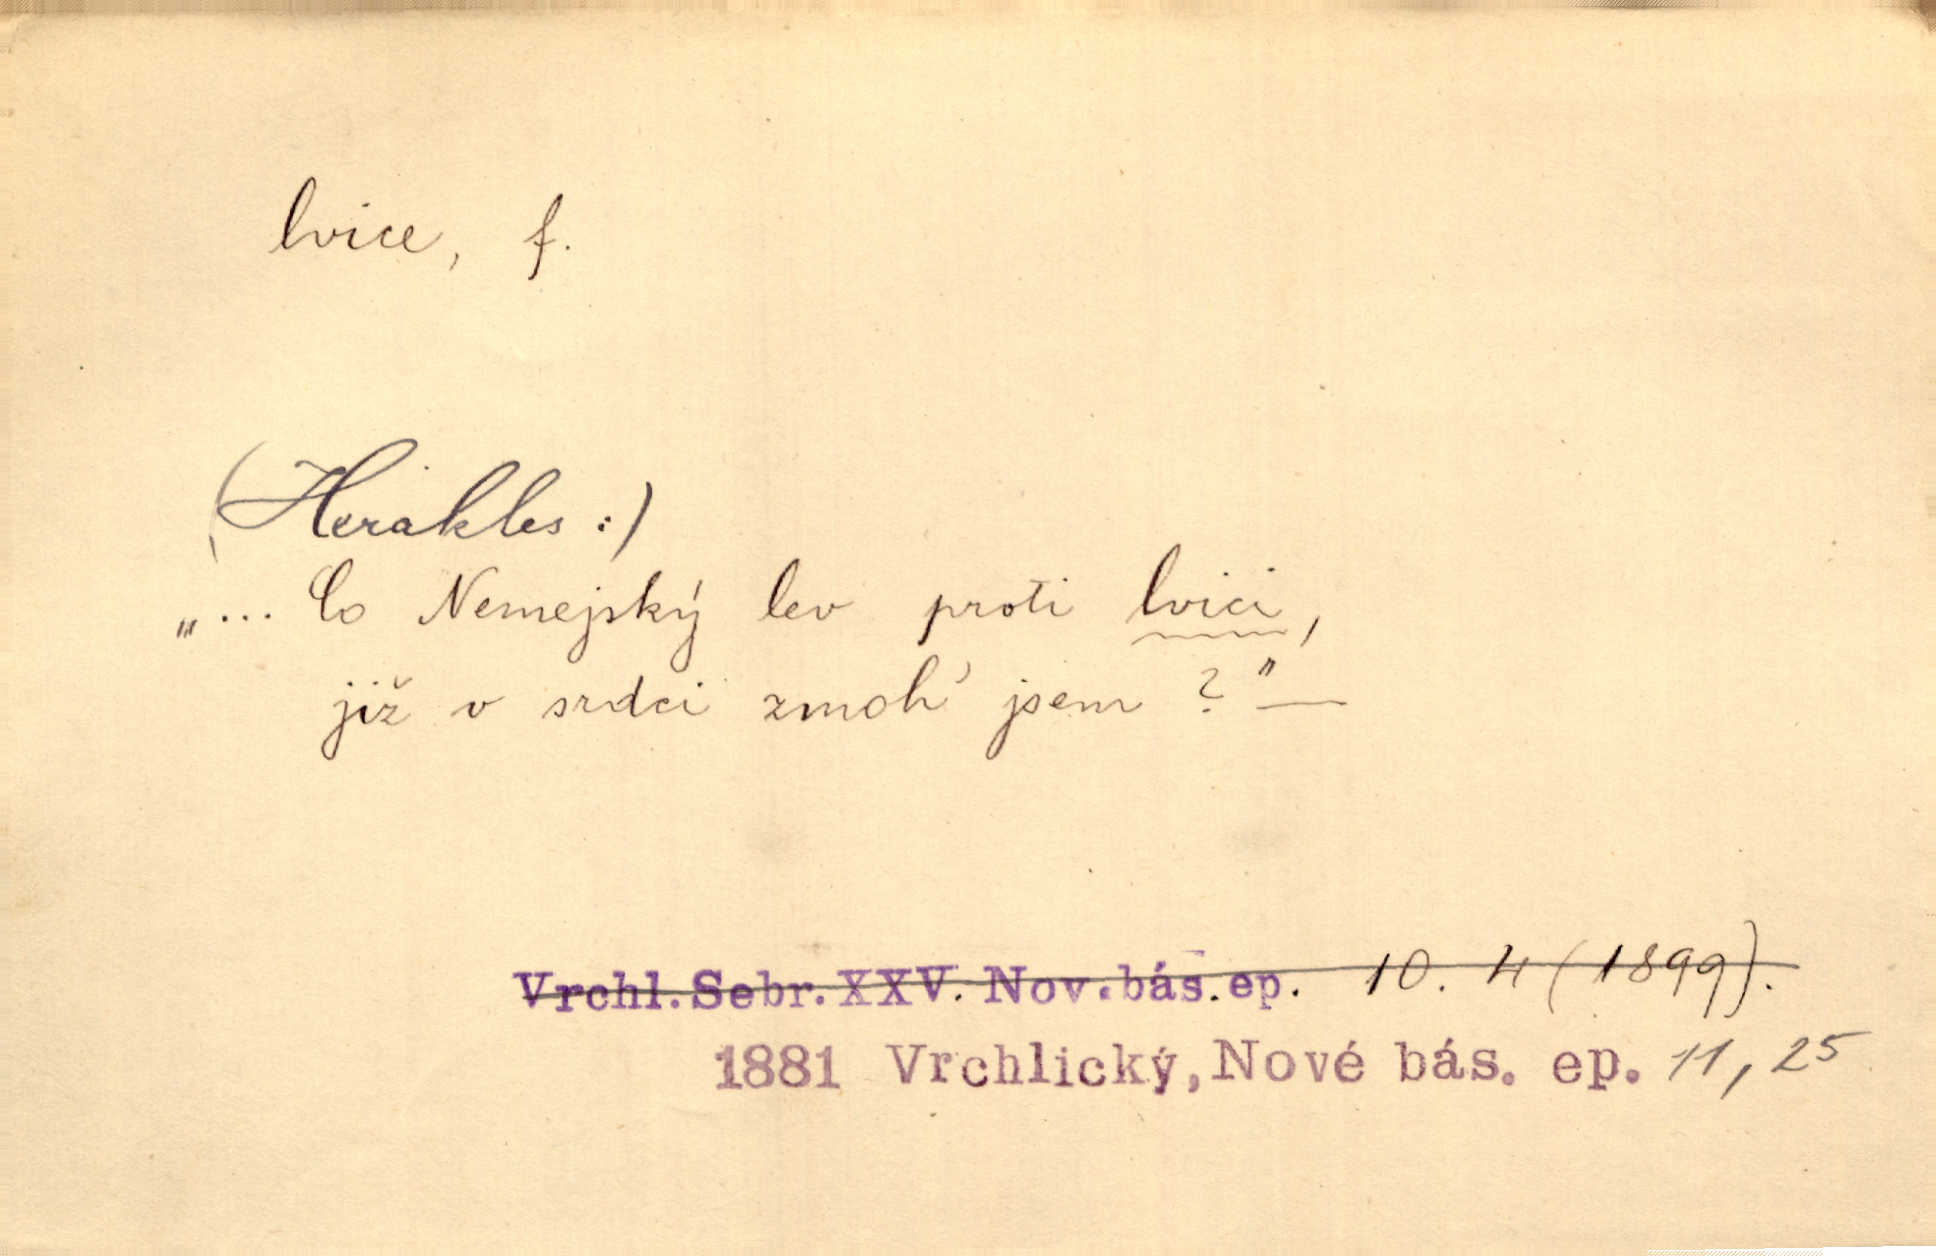 lvice, f.
(Herakles :)
„... Co Nemejský lev proti lvici,
již v srdci zmoh' jsem ?" —
Vrchl. Sebr. XXV. Nov. bás. ep. 10. 4 (1899).
1881 Vrchlický, Nové bás. ep. 11, 25